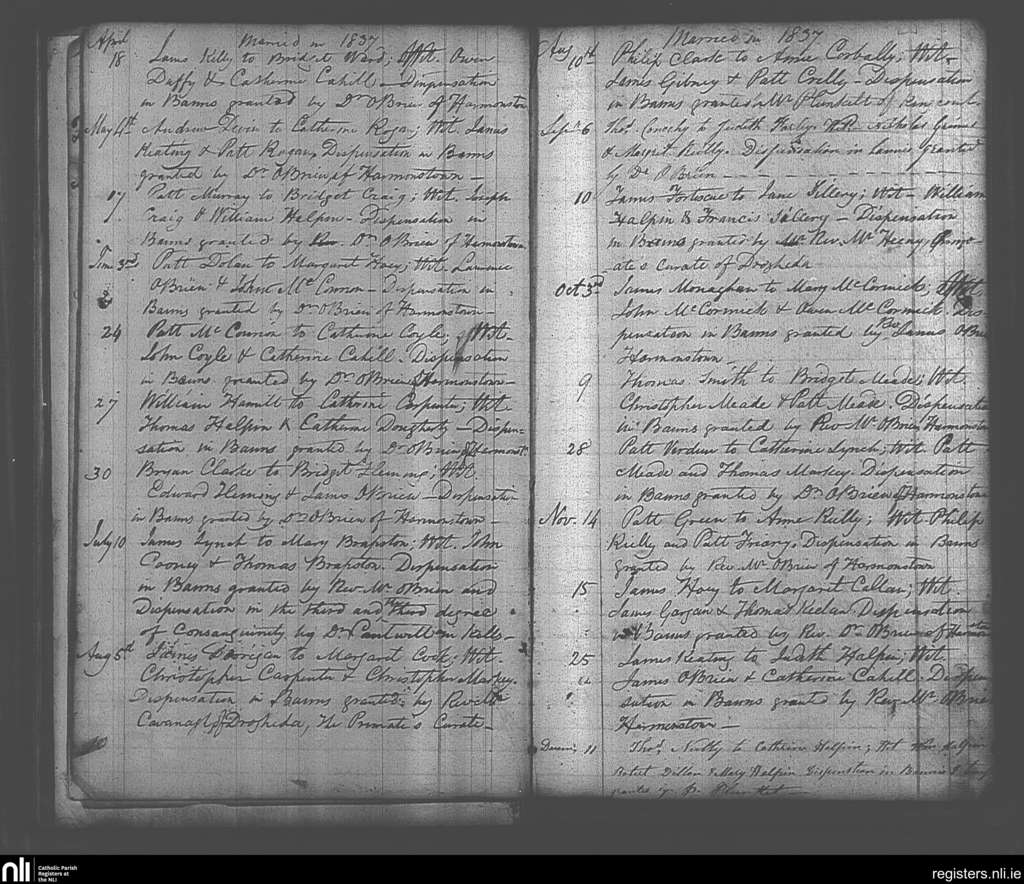 April Married in 1837
18 James Kelly to Bridget Ward; Wit. Owen
Duffy & Catherine Cahill - Dispensation
in Banns granted by Dr. OBrien of Harmonstown
May 4th Andrew Deven to Catherine Rogan; Wit. James
Keating & Patt Rogan, Dispensation in Banns
granted by Dr. OBrien of Harmonstown -
17 Patt Murray to Bridget Craig; Wit. Joseph
Craig & William Halpin - Dispensation in
Banns granted by Rev. Dr. OBrien of Harmonstown
June 3rd Patt Dolan to Margaret Hoey; Wit. Lawrence
OBrien & John Mc Connon - Dispensation in
Banns granted by Dr OBrien of Harmonstown -
24 Patt Mc Connon to Catherine Coyle; Wit.
John Coyle & Catherine Cahill. Dispensation
in Banns granted by Dr. OBrien of Harmonstown -
27 William Hamill to Catherine Carpenter; Wit.
Thomas Halpin & Catherine Dougherty - Dispen-
sation in Banns granted by Dr. OBrien of Harmonst.
30 Bryan Clarke to Bridget Fleming; Wit.
Edward Fleming & James OBrien - Dispensation
in Banns granted by Dr. OBrien of Harmonstown -
July 10 James Lynch to Mary Brapston; Wit. John
Cooney & Thomas Brapston. Dispensation
in Banns granted by Rev. Mr. OBrien and
Dispensation in the third and third degree
of Consanguinity by Dr. Cantwell in Kells -
Aug 5th James Dorrigan to Margaret Cook; Wit.
Christopher Carpenter & Christopher Markey.
Dispensation in Banns granted by Revd. Mr.
Cavanagh of Drogheda, The Primate's Curate -
Married in 1837
Aug 10th Philip Clark to Anne Corbally; Wit-
James Gibney & Patt Crolly - Dispensation
in Banns granted Mr. Plunkett of
Sept. 6 Thos. Conachy to Judith Nicholas
& Margret Reilly. Dispensation in Banns granted
by Dr. OBrien
10 James Fortescue to Jane Killery; Wit - William
Halpin & Francis - Dispensation
in Banns granted by Rev. Mr. Heeny,
ate's Curate of Drogheda
Oct 3rd James Monaghan to Mary McCormick; Wit.
John McCormick & Owen McCormick. Dis-
pensation in Banns granted by James OBrien
Harmonstown -
9 Thomas Smith to Bridget Meade; Wit.
Christopher Meade & Patt Meade. Dispensation
in Banns granted by Rev Mr. OBrien Harmonstown
28 Patt Verdun to Catharine Lynch; Wit. Patt
Meade and Thomas Markey. Dispensation
in Banns granted by Dr. OBrien of Harmonstown
Nov. 14 Patt Green to Anne Reilly; Wit Philip
Reilly and Patt Friary. Dispensation in Banns
granted by Rev. Mr. OBrien of Harmonstown
15 James Hoey to Margaret Callan; Wit.
James Gargan & Thomas Keelan Dispensation
in Banns granted by Rev. Dr. OBrien of
25 James Keating to Judith Halpin; Wit
James OBrien & Catherine Cahill. Dispen
sation in Banns granted by Rev. Mr. OBrien
Harmonstown -
11 Thos. to Catherine Halpin; Wit Halpin
Robert Dillon & Mary Halpin Dispensation in Banns
granted by
nli Catholic Parish
Registers at
the NLI
registers.nli.ie